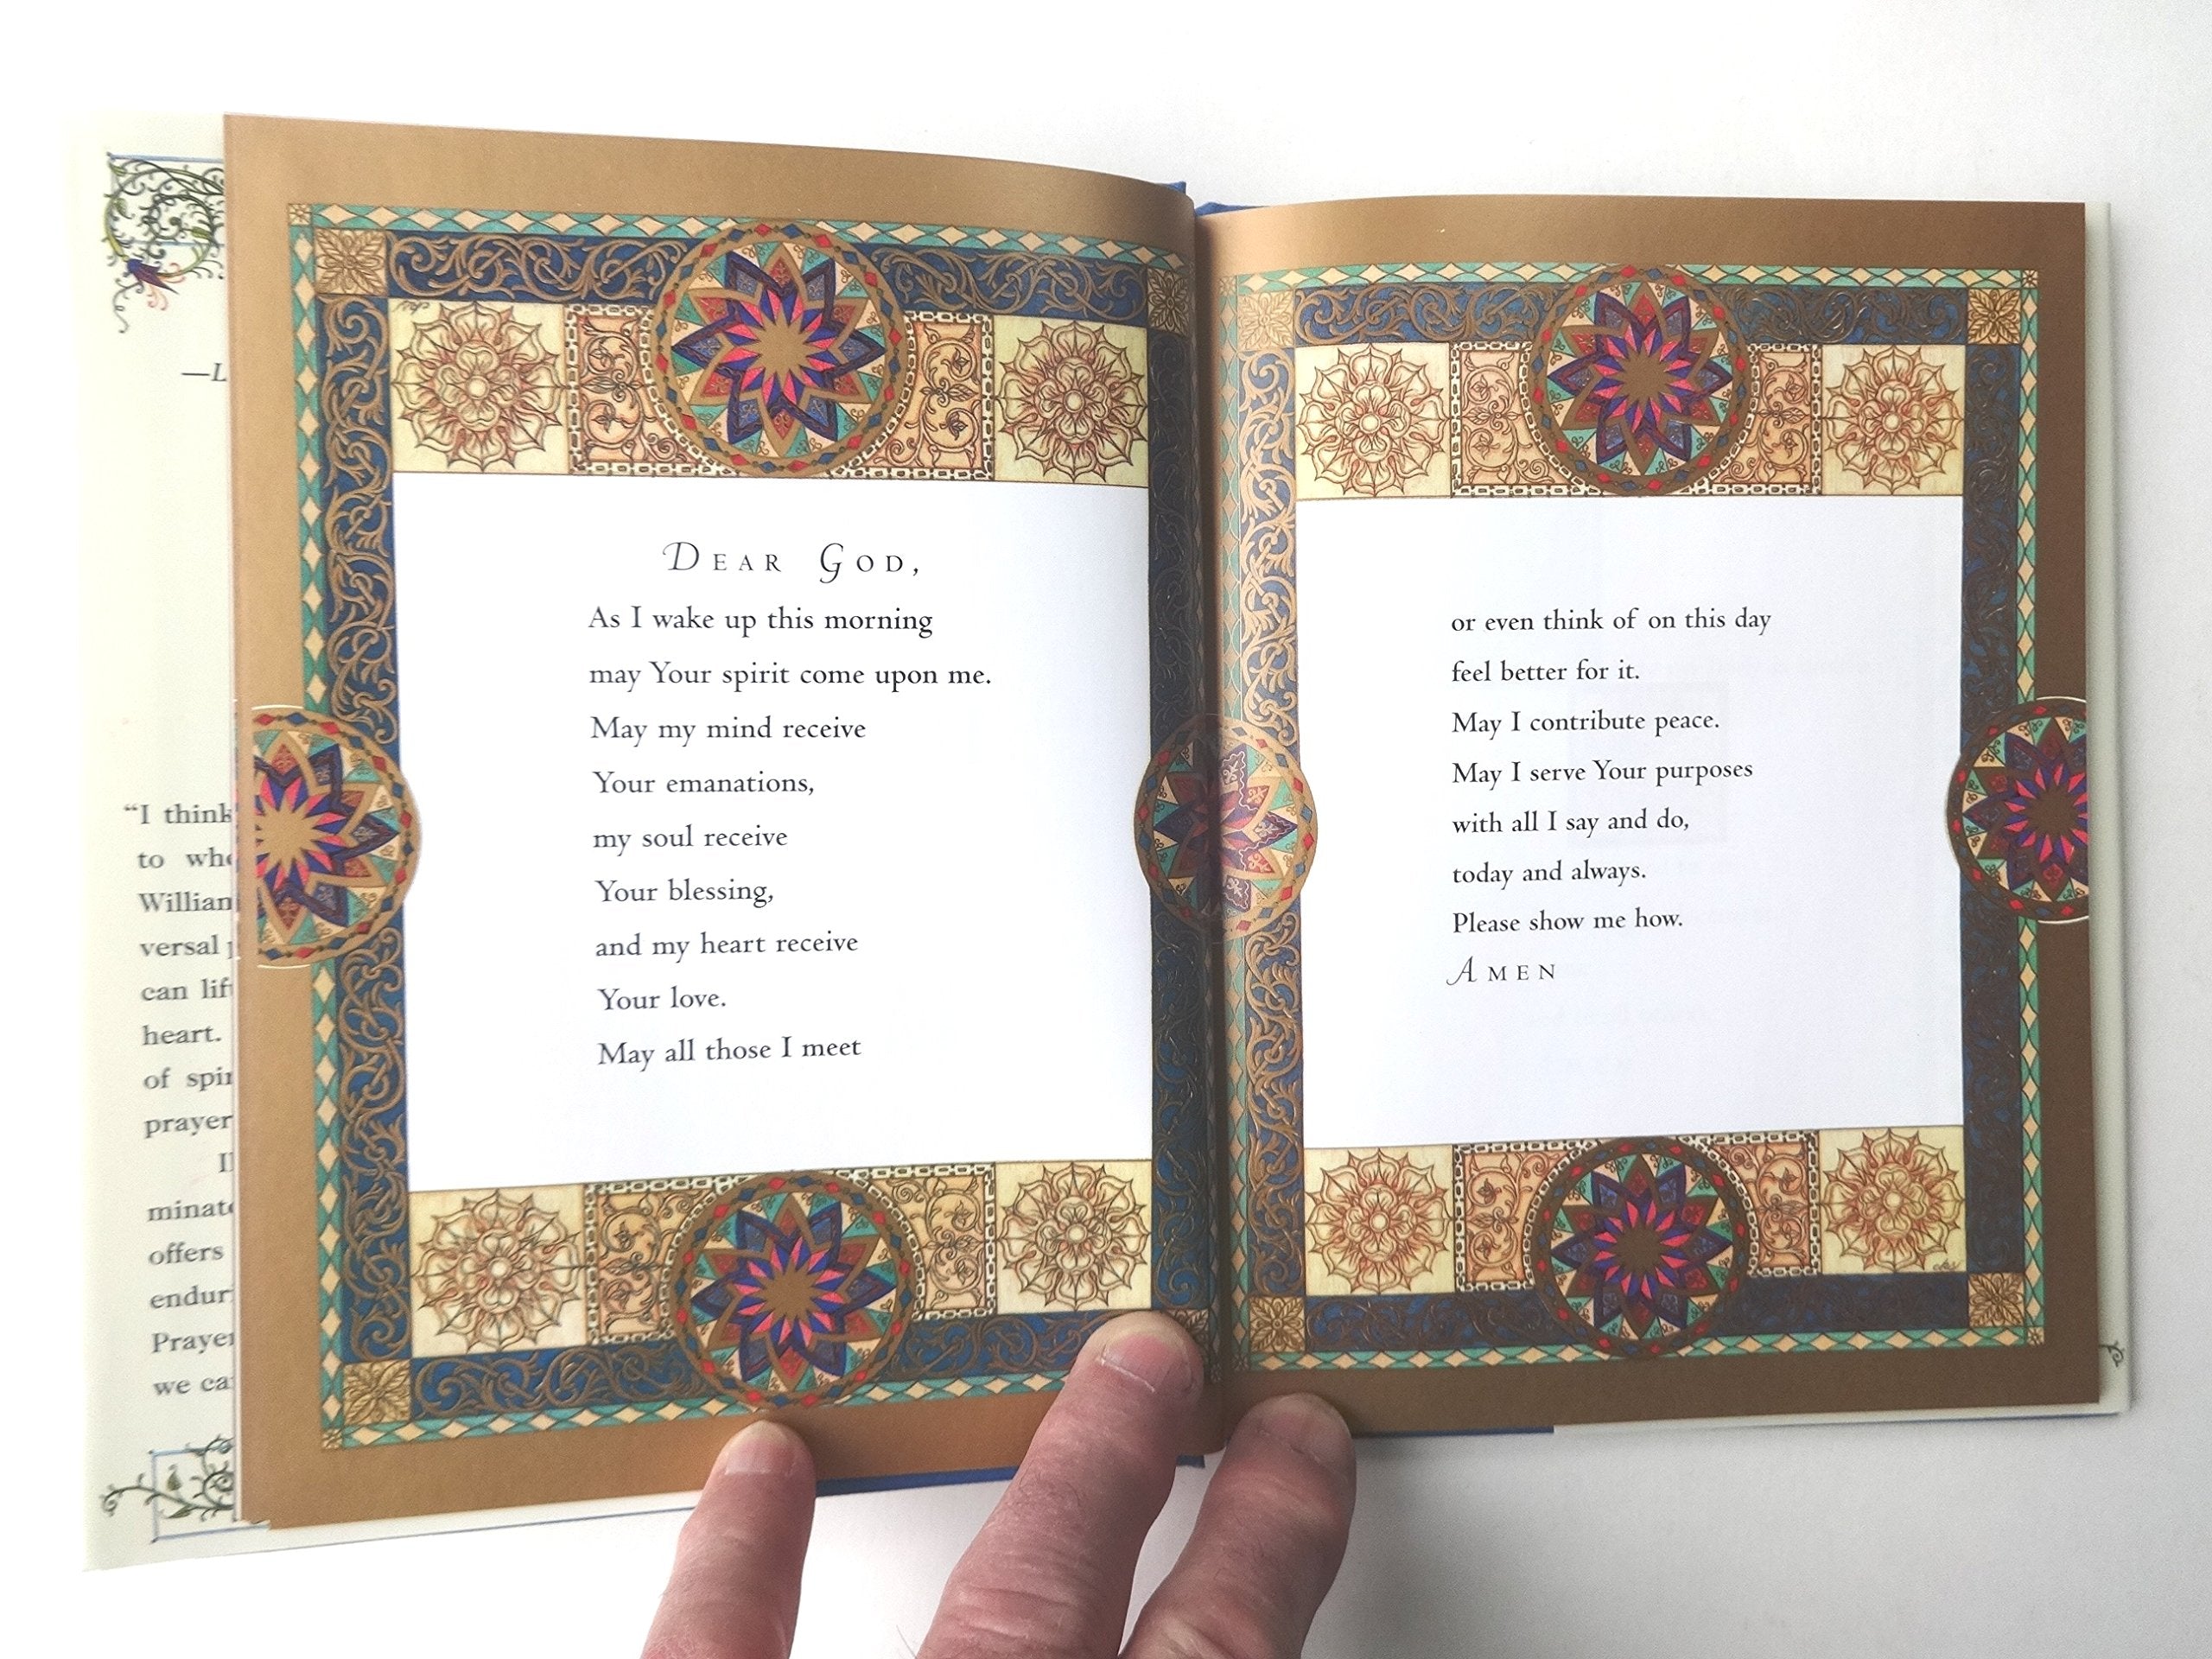 —L
“I think
to
versal
can
heart.
of
prayer
offers
we
DEAR GOD,
As I wake up this morning
may Your spirit come upon me.
May my mind receive
Your emanations,
my soul receive
Your blessing,
and my heart receive
Your love.
May all those I meet
or even think of on this day
feel better for it.
May I contribute peace.
May I serve Your purposes
with all I say and do,
today and always.
Please show me how.
AMEN